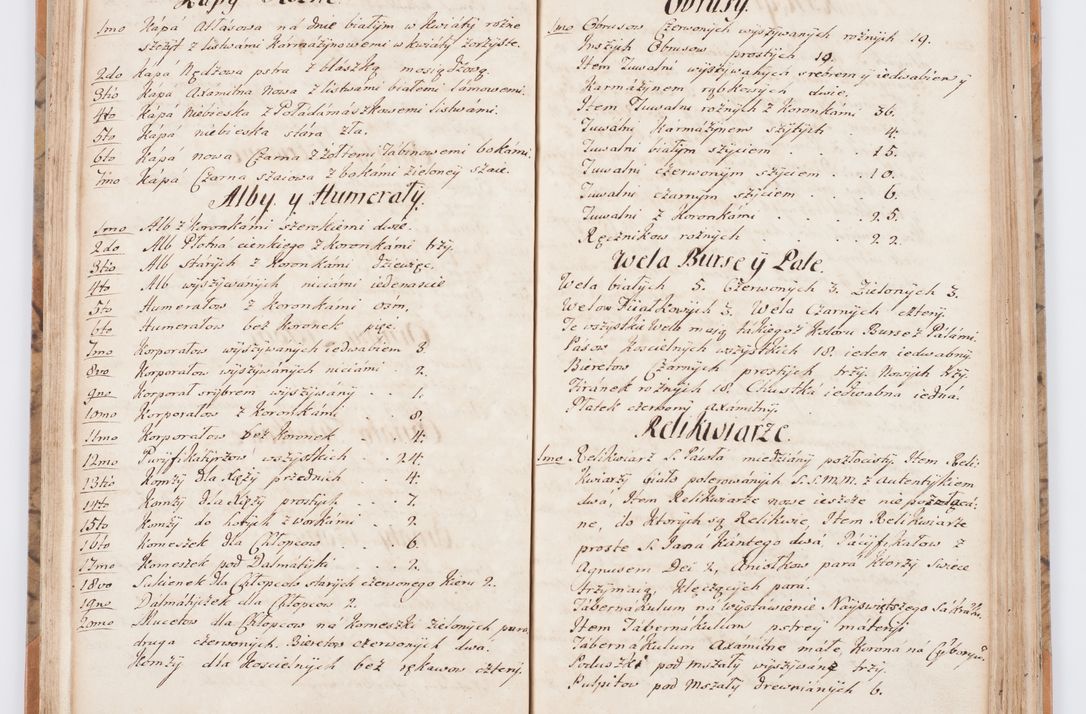 Kapy Rozne.
1mo Kápá Atłásowa ná dnie białym w kwiáty rożne
szczyt z listwámi Kármázynowemi w kwiáty zorzyste.
2do Kapá Nędzowa pstra z blászką mosiądzową.
3tio Kápá Axámitna Nowa z listwámi białemi lámowemi.
4to Kápá Niebieska z Połádámászkowemi listwámi.
5to Kápá niebieska stara zła.
6to Kápá nowa Czarna z zołtemi Tábinowemi bokámi.
7mo Kápá Czarna szaiowa z bokámi zieloney szaie.
Alby y Humerały.
1mo Alb z Koronkámi szerokiemi dwie.
2do Alb Płotná cienkiego z koronkámi trzy.
3tio Alb stárych z koronkámi dziewięć.
4to Alb wyszywánych niciámi iedenascie
5to Humerałow z koronkámi osm.
6to Humerałow bez Koronek pięć.
7mo Korporałow wyszywánych iedwabiem 3.
8vo Korporałow wyszywánych niciámi . 2.
9no Korporał srybrem wyszywány . . 1.
10mo Korporałow z Koronkámi . . 8.
11mo Korporałow bez Koronek . . 4.
12mo Puryfikatyrzow wszystkich . . 24.
13tio Komży dla Xięży przednich . . 4.
14to Komży dla Xięży prostych . . 7.
15to Komży do hostych z workámi . . 2.
16to Komeszek dla Chłopcow . . . 6.
17mo Komeszek pod Dalmátyki . . . 2.
18vo Sukienek dla Chłopców starych czerwonego Kieru 2.
19no Dálmátyczek dla Chłopcow 2.
20mo Mucetow dla Chłopcow ná Komeszki zielonych pará
druga czerwonych. Bieretow czerwonych dwa.
Komży dla Koscielnych bez rękawow cztery.
Obrusy.
1mo Obrusow Czerwonych wyszywanych rożnych 19.
Inszych Obrusow prostych 19.
Item Tuwalni wyszywanych srebrem y iedwabiem y
Karmázynem rąbkowych dwie.
Item Tuwalni rożnych z Koronkámi 36.
Tuwálni Kármázynem szytych . 4.
Tuwalni białym szyciem . . . 15.
Tuwalni czerwonym szyciem . . 10.
Tuwalni czarnym szyciem . . . 6.
Tuwalni z Koronkámi . . . 25.
Ręcznikow rożnych . . . 22.
Wela Burse y Pale.
Wela białych 5. Czerwonych 3. Zielonych 3.
Welow Fiałkowych 3. Wela Czarnych cztery.
Te wszystkie Wela máią tákiegoż Koloru Bursez Pálámi.
Pásow Koscielnych wszystkich 18. ieden iedwabny
Bieretow Czarnych prostych trzy. Nowych trzy.
Firánek rożnych 18. Chustká iedwabna iedna.
Płatek czerwony axámitny.
Relikwiarze.
1mo Relikwiarz S. Páwła miedziány pozłocisty. Item Reli-
kwiarzy biáło polerowánych S.S.M.M. z autentykiem
dwá, Item Relikwiarze nowe ieszcze nie pozłoca-
ne, do ktorych są Relikwie, Item Relikwiarze
proste S. Janá Kántego dwá. Pácyfikałow z
Agnusem Dei 2, Aniołkow pará ktorzy swiece
trzymáią klęczących pará.
Tábernákulum ná wystáwienie Nayświętszego Sákrám:
Item Tábernákulum pstrey máteryi
Tábernákulum Axámitne máłe, Korona ná Cyborya.
Poduszki pod mszały wyszywáne trzy.
Pulpitow pod Mszały drewniánych 6.